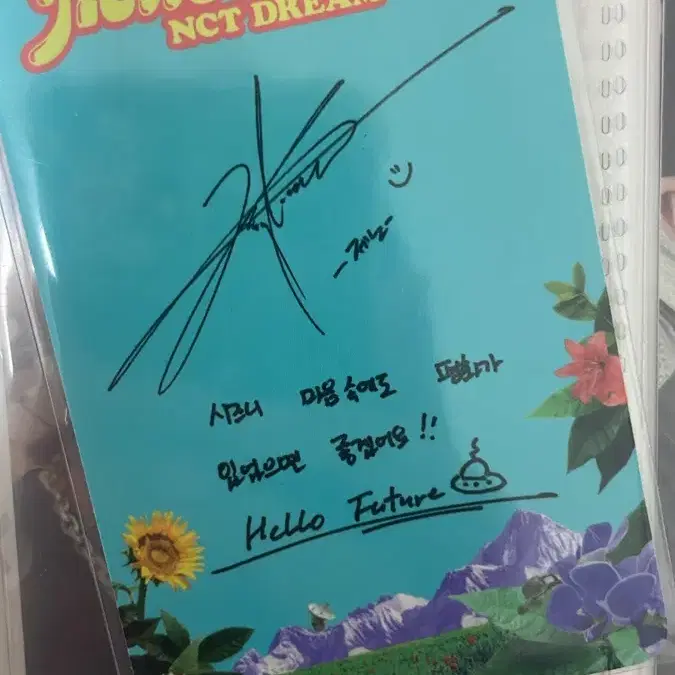 NCT DREAM
-제노-
시즈니 마음 속에도 평화가
있었으면 좋겠어요!!
Hello Future